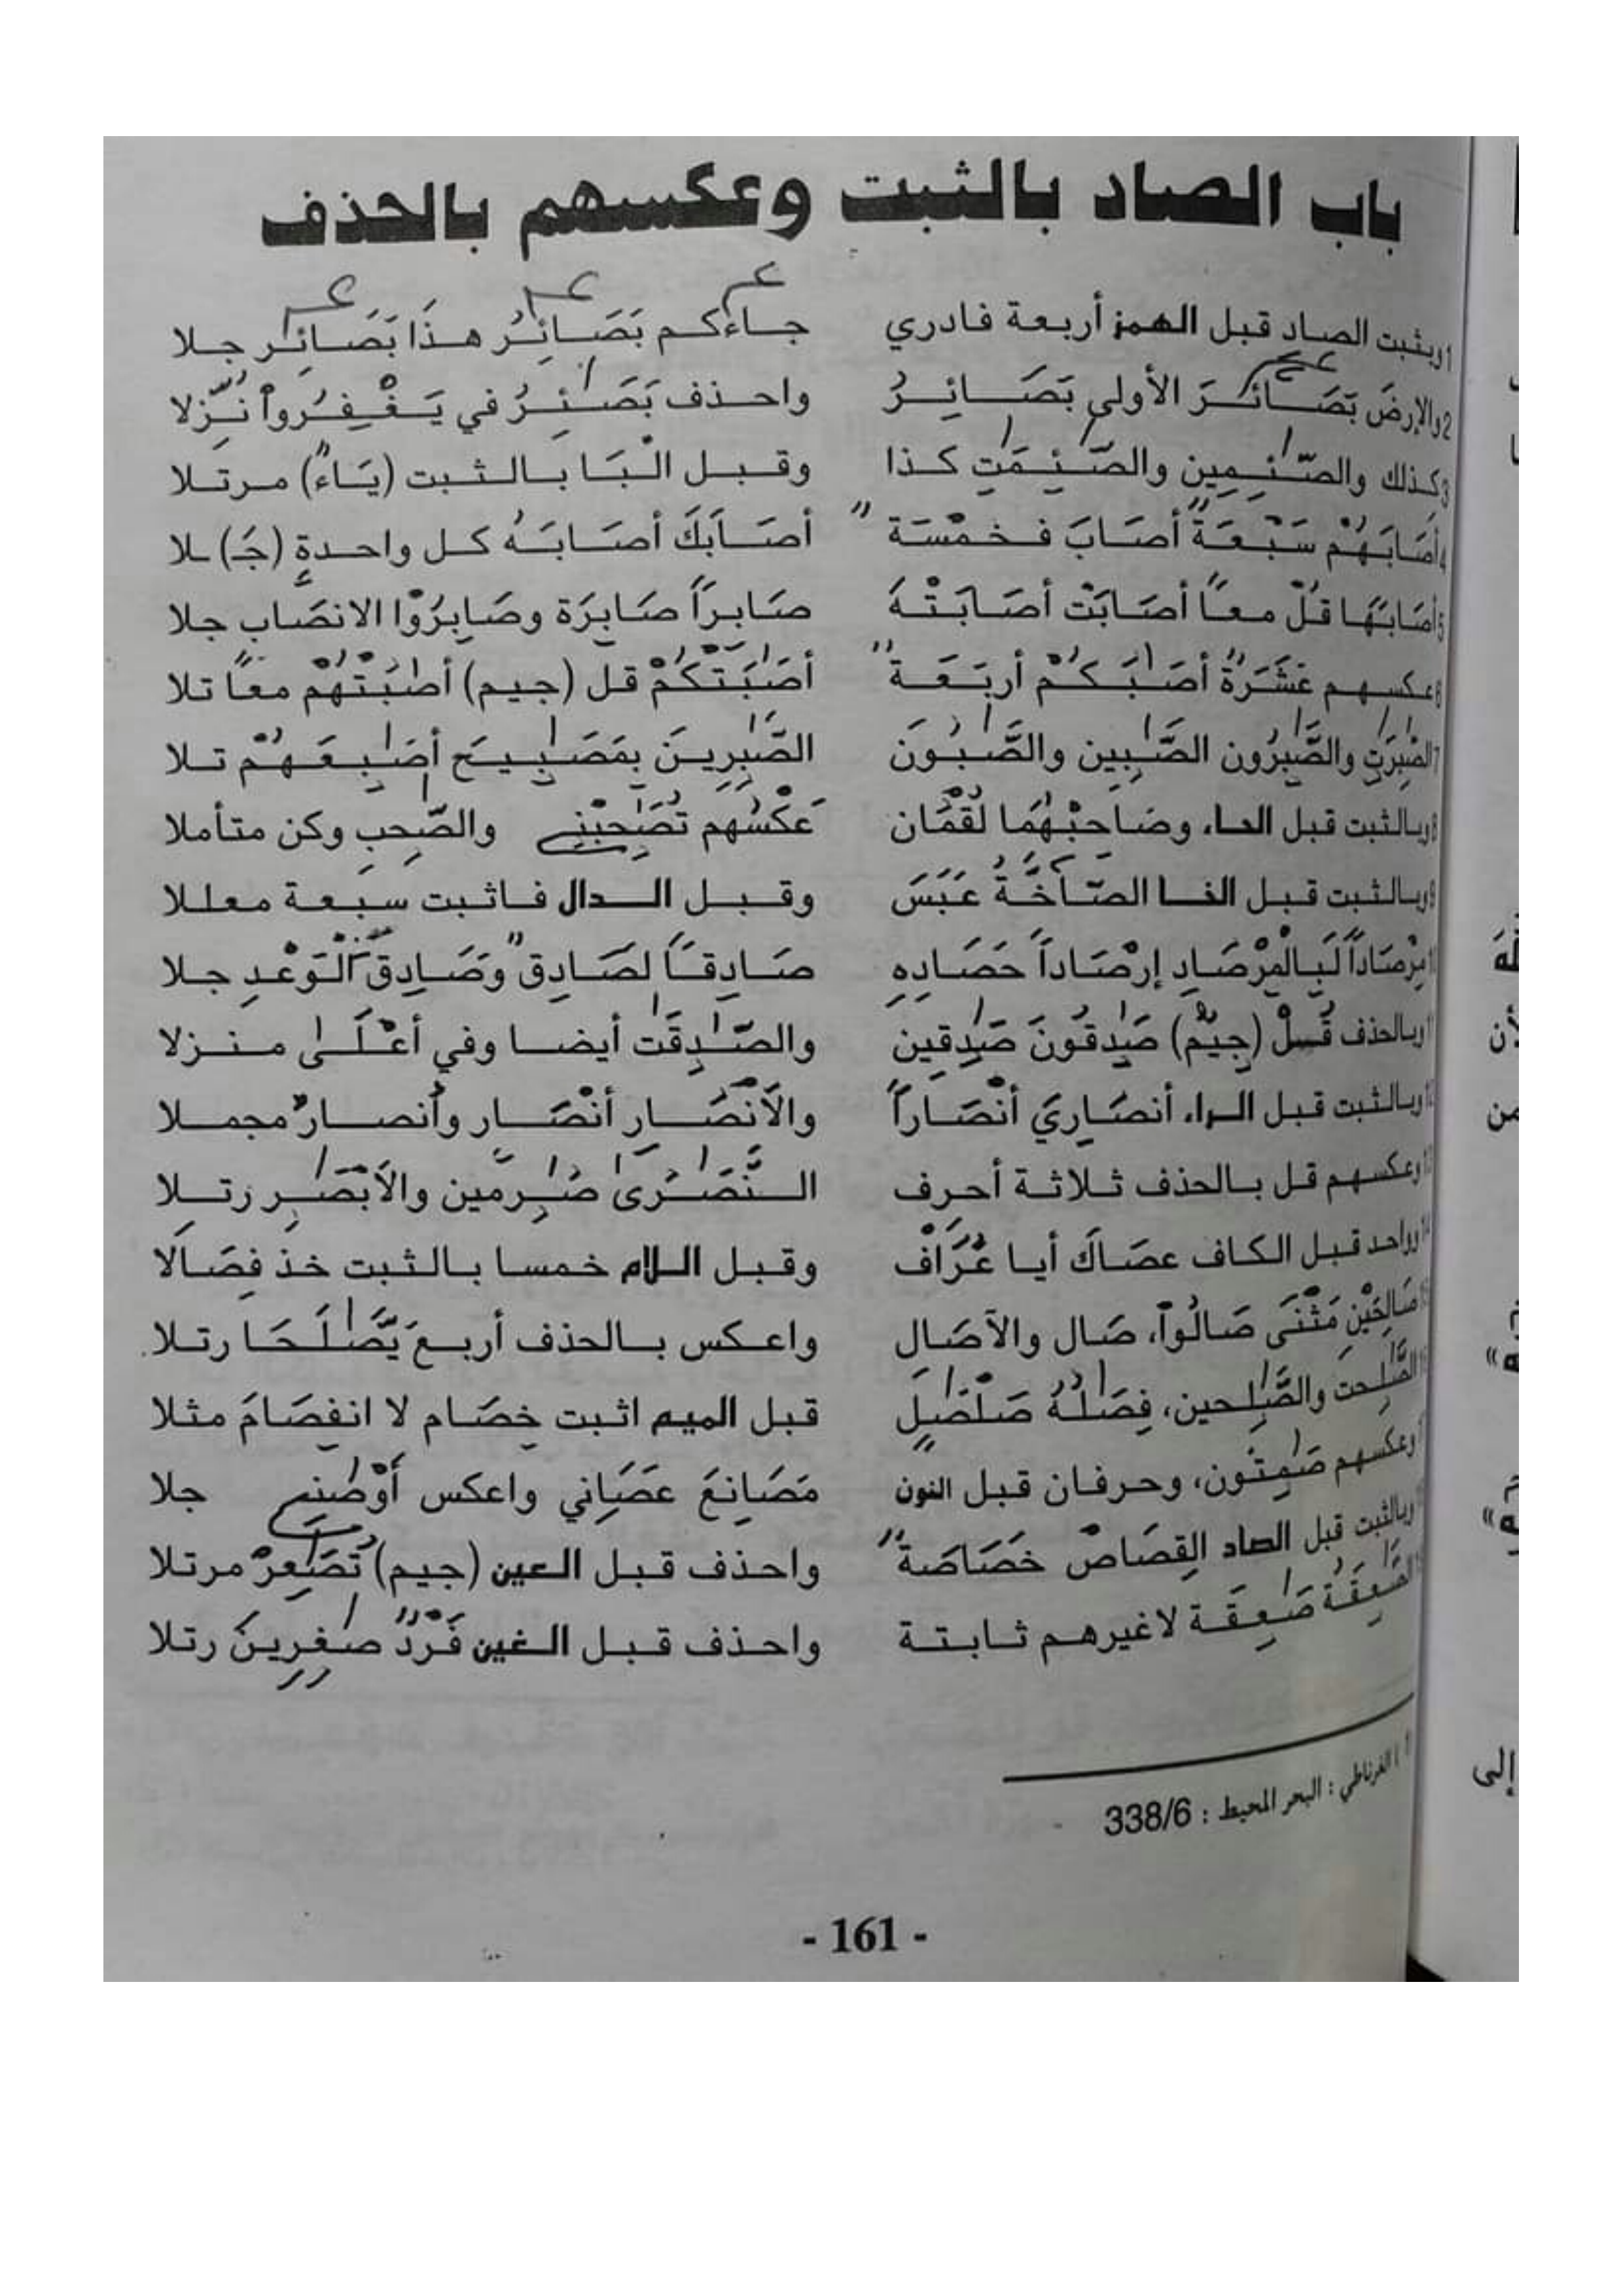 باب الصاد بالثبت وعكسهم بالحذف
1 ويثبت الصاد قبل الهمز أربعة فادري جاءكم بَصَائِرُ هذَا بَصَائِر جلا
2 والارضَ بَصَائرَ الأولى بَصَائِرُ واحذف بَصَئِرُ في يَغْفِرُواْ نُزِّلا
3 كذلك والصَّئِمِين والصَّئِمَتِ كذا وقبل الْبَا بالثبت (يَاءً) مرتلا
4 أصَابَهُمْ سَبْعَةً أصَابَ فخمْسَة أصَابَكَ أصَابَهُ كل واحدةٍ (جَ) لا
5 أصَابَهَا قُلْ معاً أصَابَتْ أصَابَتْهَ صَابراً صَابِرَة وصَابِرُوا الانصَاب جلا
6 عكسهم عَشَرَةٌ أصَبَكُمْ أربَعَة أصَبَتْكُمْ قل (جيم) أصَبَتْهُم معاً تلا
7 الصَّبِرَتِ والصَّبِرُون الصَّبِين والصَّبُونَ الصَّبِرِينَ بِمَصَبِيحَ أصَبِعَهُمْ تلا
8 وبالثبت قبل الحاء وصَاحِبْهُمَا لُقْمَان عَكْسُهم تُصَحِبْنِي والصَّحِبِ وكن متأملا
9 وبالثبت قبل الخا الصَّاخَّةُ عَبَسَ وقبل الدال فاثبت سبعة معللا
10 مِرْصَاداً لَبِالْمِرْصَادِ إرْصَاداً حَصَادِهِ صَادِقاً لصَادِق وَصَادِقَ الْوَعْدِ جلا
11 وبالحذف قُلْ (جِيمٌ) صَدِقُونَ صَدِقين والصَّدِقَتِ أيضا وفي أعْلَى منزلا
12 وبالثبت قبل الراء أنصَارِيَ أنْصَاراً والأنْصَارِ أنْصَار وأنصارٌ مجملا
13 وعكسهم قل بالحذف ثلاثة أحرف النَّصَرَى صَرِمين والأبْصَرِ رتلا
14 وواحد قبل الكاف عصَاكَ أيا عُرَّافْ وقبل اللام خمسا بالثبت خذ فِصَالا
15 صَالِحَيْنِ مَثْنَى صَالُواْ، صَال والآصَالِ واعكس بالحذف أربعَ يَصَّلَحَا رتلا
16 الصَّلِحت والصَّلِحين، فِصَلُهُ صَلْصَلٍ قبل الميم اثبت خِصَام لا انفِصَامَ مثلا
وعكسهم صَمِتُون، وحرفان قبل النون مَصَانِعَ عَصَانِي واعكس أَوْصَنِي جلا
وبالثبت قبل الصاد القِصَاصْ خَصَاصَة واحذف قبل العين (جيم) تُصَعِرْ مرتلا
الصَّعِقَةُ صَعِقَة لاغيرهم ثابتة واحذف قبل الغين فَرْدٌ صَغِرِينَ رتلا
1) الغرناطي : البحر المحيط : 338/6
- 161 -